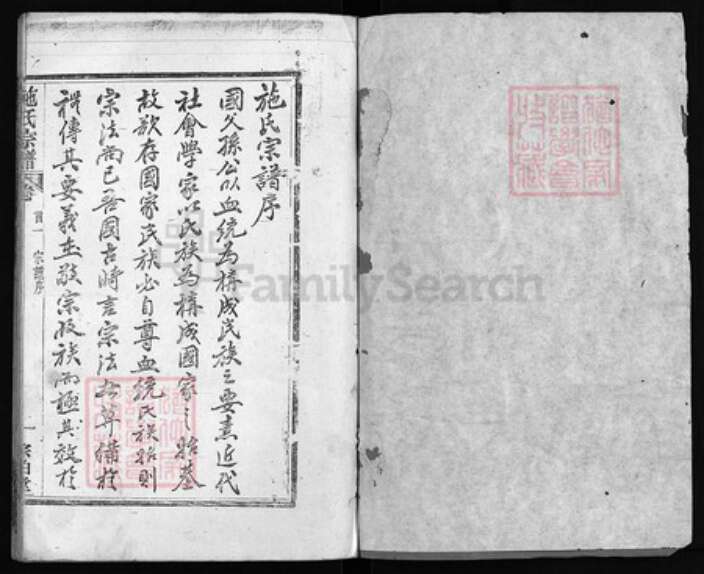 施氏宗譜序
國父孫公以血統為構成民族之要素近代
社會學家以氏族為構成國家之始基
故欲存國家民族必自尊血統氏族始則
宗法而已吾國古時言宗法者草備於
禮傳其要義在敬宗收族而極其效於
施氏宗譜 卷首一 宗譜序 一
FamilySearch